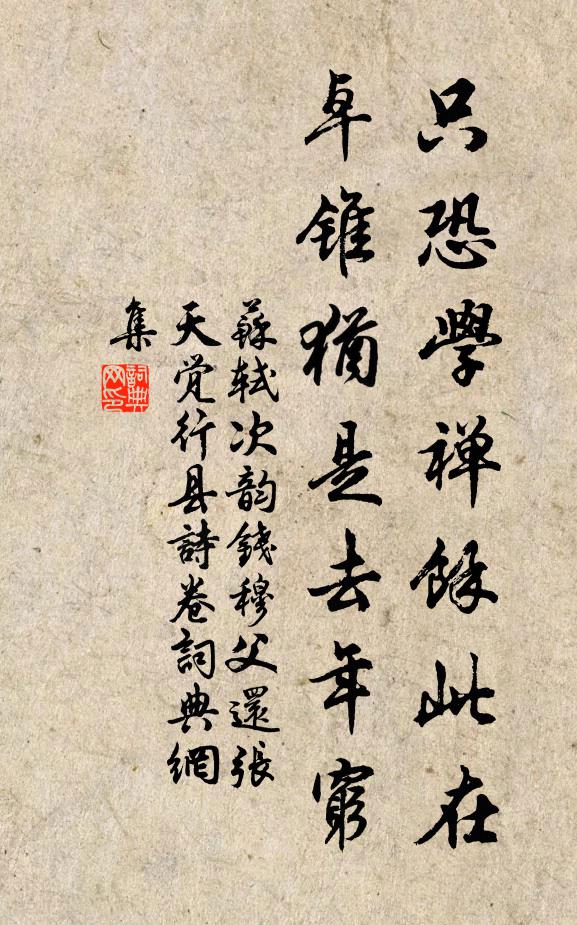 只恐學禅餘此在
卓錐猶是去年窮
蘇軾次韵錢穆父還張
天觉行县詩卷詞典網
集
詞典
网印